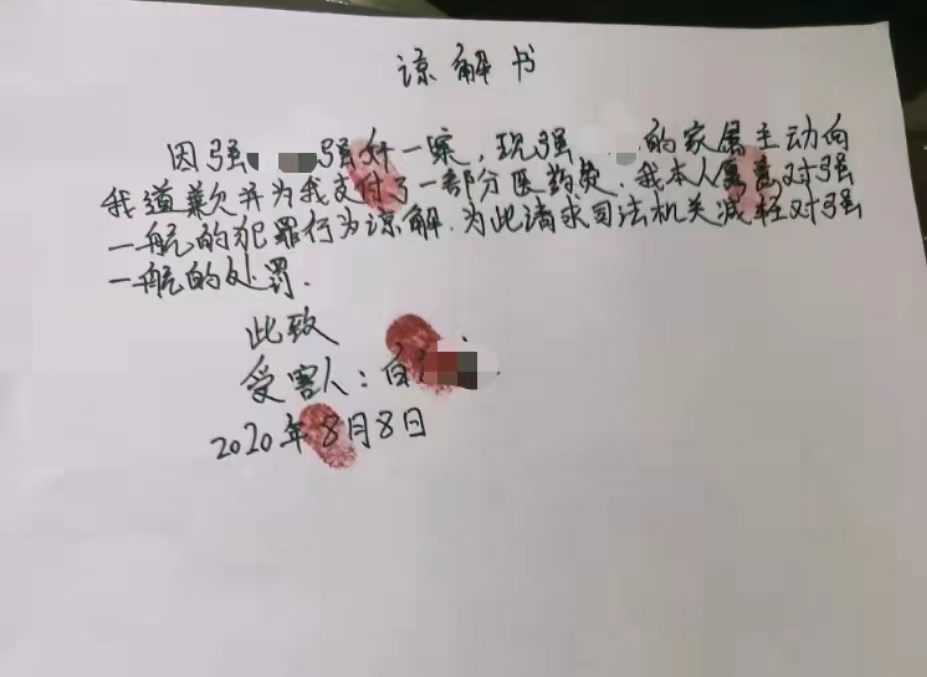 谅解书
因强强奸一案，现强的家属主动向
我道歉并为我支付了一部分医药费.我本人愿意对强
一航的犯罪行为谅解.为此请求司法机关减轻对强
一航的处罚.
此致
受害人：白
2020年8月8日